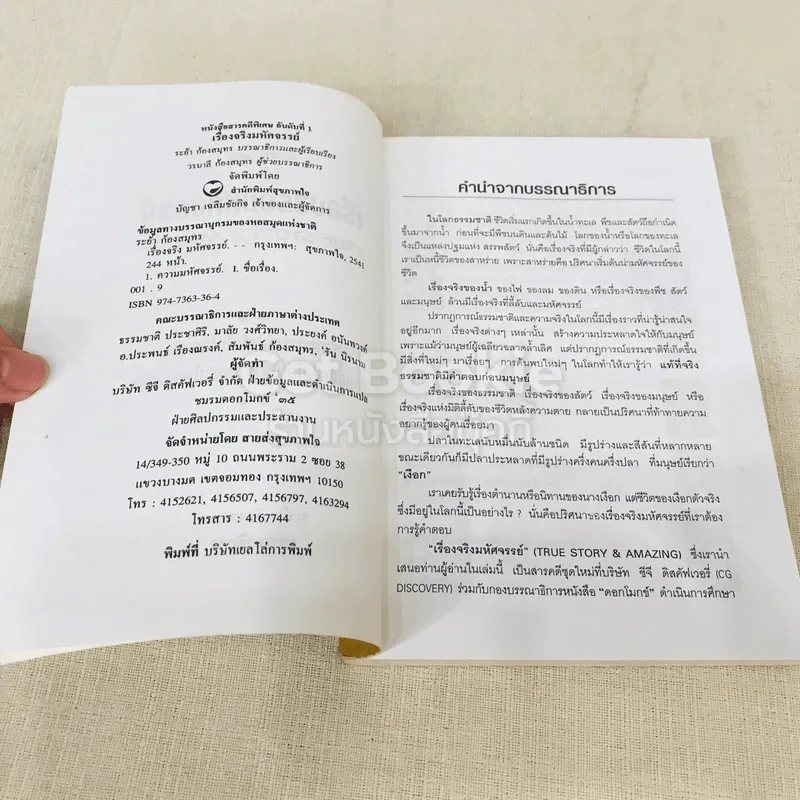 หนังสือสารคดีพิเศษ อันดับที่ 1
เรื่องจริงมหัศจรรย์
ระย้า ก้องสมุทร บรรณาธิการและผู้เรียบเรียง
วรมาลี ก้องสมุทร ผู้ช่วยบรรณาธิการ
จัดพิมพ์โดย
สำนักพิมพ์สุขภาพใจ
บัญชา เฉลิมชัยกิจ เจ้าของและผู้จัดการ
ข้อมูลทางบรรณานุกรมของหอสมุดแห่งชาติ
ระย้า ก้องสมุทร
เรื่องจริง มหัศจรรย์. -- กรุงเทพฯ: สุขภาพใจ, 2541
244 หน้า.
1. ความมหัศจรรย์. I. ชื่อเรื่อง.
001 . 9
ISBN 974-7363-36-4
คณะบรรณาธิการและฝ่ายภาษาต่างประเทศ
ธรรมชาติ ประชาศิริ, มาลัย วงศ์วิทยา, ประยงค์ อนันทวงศ์
อ.ประพนธ์ เรืองณรงค์, สัมพันธ์ ก้องสมุทร, 'รัน นิรนาม
ผู้จัดทำ
บริษัท ซีจี ดิสคัฟเวอรี่ จำกัด ฝ่ายข้อมูลและดำเนินการแปล
ชมรมดอกโมกข์ '๓๕
ฝ่ายศิลปกรรมและประสานงาน
จัดจำหน่ายโดย สายส่งสุขภาพใจ
14/349-350 หมู่ 10 ถนนพระราม 2 ซอย 38
แขวงบางมด เขตจอมทอง กรุงเทพฯ 10150
โทร : 4152621, 4156507, 4156797, 4163294
โทรสาร : 4167744
พิมพ์ที่ บริษัทเยลโล่การพิมพ์
คำนำจากบรรณาธิการ
ในโลกธรรมชาติ ชีวิตเริ่มแรกเกิดขึ้นในน้ำทะเล พืชและสัตว์ถือกำเนิด
ขึ้นมาจากน้ำ ก่อนที่จะมีพืชบนดินและต้นไม้ โลกของน้ำหรือโลกของทะเล
จึงเป็นแหล่งปฐมแห่ง สรรพสัตว์ นั่นคือเรื่องจริงที่มีผู้กล่าวว่า ชีวิตในโลกนี้
เราเป็นหนี้ชีวิตของสาหร่าย เพราะสาหร่ายคือ ปริศนาเริ่มต้นนำมหัศจรรย์ของ
ชีวิต
เรื่องจริงของน้ำ ของไฟ ของลม ของดิน หรือเรื่องจริงของพืช สัตว์
และมนุษย์ ล้วนมีเรื่องจริงที่ลี้ลับและมหัศจรรย์
ปรากฏการณ์ธรรมชาติและความจริงในโลกนี้มีเรื่องราวที่น่ารู้น่าสนใจ
อยู่อีกมาก เรื่องจริงต่างๆ เหล่านั้น สร้างความประหลาดใจให้กับมนุษย์
เพราะแม้ว่ามนุษย์ผู้เฉลียวฉลาดล้ำเลิศ แต่ปรากฏการณ์ธรรมชาติที่เกิดขึ้น
มีสิ่งที่ใหม่ๆ มาเรื่อยๆ การค้นพบใหม่ๆ ในโลกทำให้เรารู้ว่า แท้ที่จริง
ธรรมชาติมีคำตอบก่อนมนุษย์
เรื่องจริงของธรรมชาติ เรื่องจริงของสัตว์ เรื่องจริงของมนุษย์ หรือ
เรื่องจริงแห่งมิติลี้ลับของชีวิตหลังความตาย กลายเป็นปริศนาที่ท้าทายความ
อยากรู้ของผู้คนเรื่อยมา
ปลาในทะเลนับหมื่นนับล้านชนิด มีรูปร่างและสีสันที่หลากหลาย
ขณะเดียวกันก็มีปลาประหลาดที่มีรูปร่างครึ่งคนครึ่งปลา ที่มนุษย์เรียกว่า
"เงือก"
เราเคยรับรู้เรื่องตำนานหรือนิทานของนางเงือก แต่ชีวิตของเงือกตัวจริง
ซึ่งมีอยู่ในโลกนี้เป็นอย่างไร ? นั่นคือปริศนาของเรื่องจริงมหัศจรรย์ที่เราต้อง
การรู้คำตอบ
"เรื่องจริงมหัศจรรย์" (TRUE STORY & AMAZING) ซึ่งเรานำ
เสนอท่านผู้อ่านในเล่มนี้ เป็นสารคดีชุดใหม่ที่บริษัท ซีจี ดิสคัฟเวอรี่ (CG
DISCOVERY) ร่วมกับกองบรรณาธิการหนังสือ "ดอกโมกข์" ดำเนินการศึกษา
Get Bookie
ร้านหนังสือ